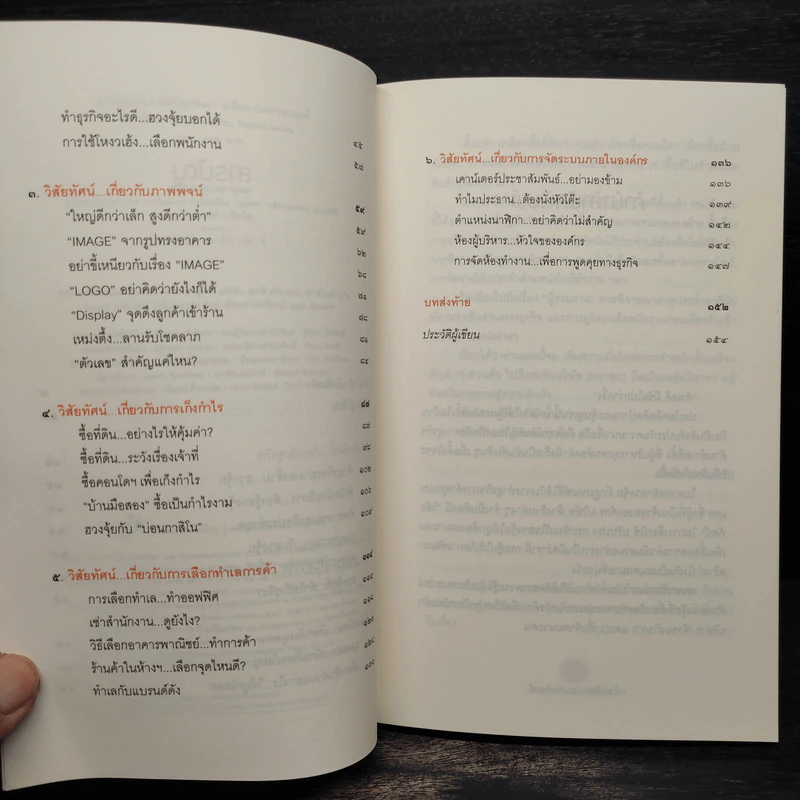 ทำธุรกิจอะไรดี...ฮวงจุ้ยบอกได้ ๔๕
การใช้โหงวเฮ้ง...เลือกพนักงาน ๕๗
๓. วิสัยทัศน์...เกี่ยวกับภาพพจน์ ๕๙
“ใหญ่ดีกว่าเล็ก สูงดีกว่าต่ำ” ๕๙
“IMAGE” จากรูปทรงอาคาร ๖๒
อย่าขี้เหนียวกับเรื่อง “IMAGE” ๖๘
“LOGO” อย่าคิดว่ายังไงก็ได้ ๗๑
“Display” จุดดึงลูกค้าเข้าร้าน ๗๘
เหม่งตึ้ง...ลานรับโชคลาภ ๘๑
“ตัวเลข” สำคัญแค่ไหน? ๘๔
๔. วิสัยทัศน์...เกี่ยวกับการเก็งกำไร ๘๗
ซื้อที่ดิน...อย่างไรให้คุ้มค่า? ๘๗
ซื้อที่ดิน...ระวังเรื่องเจ้าที่ ๙๔
ซื้อคอนโดฯ เพื่อเก็งกำไร
“บ้านมือสอง” ซื้อเป็นกำไรงาม ๑๐๖
ฮวงจุ้ยกับ “บ่อนกาสิโน” ๑๐๙
๕. วิสัยทัศน์...เกี่ยวกับการเลือกทำเลการค้า ๑๑๔
การเลือกทำเล...ทำออฟฟิศ ๑๑๔
เช่าสำนักงาน...ดูยังไง?
วิธีเลือกอาคารพาณิชย์...ทำการค้า
ร้านค้าในห้างฯ...เลือกจุดไหนดี?
ทำเลกับแบรนด์ดัง
๖. วิสัยทัศน์...เกี่ยวกับการจัดระบบภายในองค์กร ๑๓๖
เคาน์เตอร์ประชาสัมพันธ์...อย่ามองข้าม ๑๓๖
ทำไมประธาน...ต้องนั่งหัวโต๊ะ ๑๓๙
ตำแหน่งนาฬิกา...อย่าคิดว่าไม่สำคัญ ๑๔๒
ห้องผู้บริหาร...หัวใจขององค์กร ๑๔๔
การจัดห้องทำงาน...เพื่อการพูดคุยทางธุรกิจ ๑๔๗
บทส่งท้าย ๑๕๒
ประวัติผู้เขียน ๑๕๔